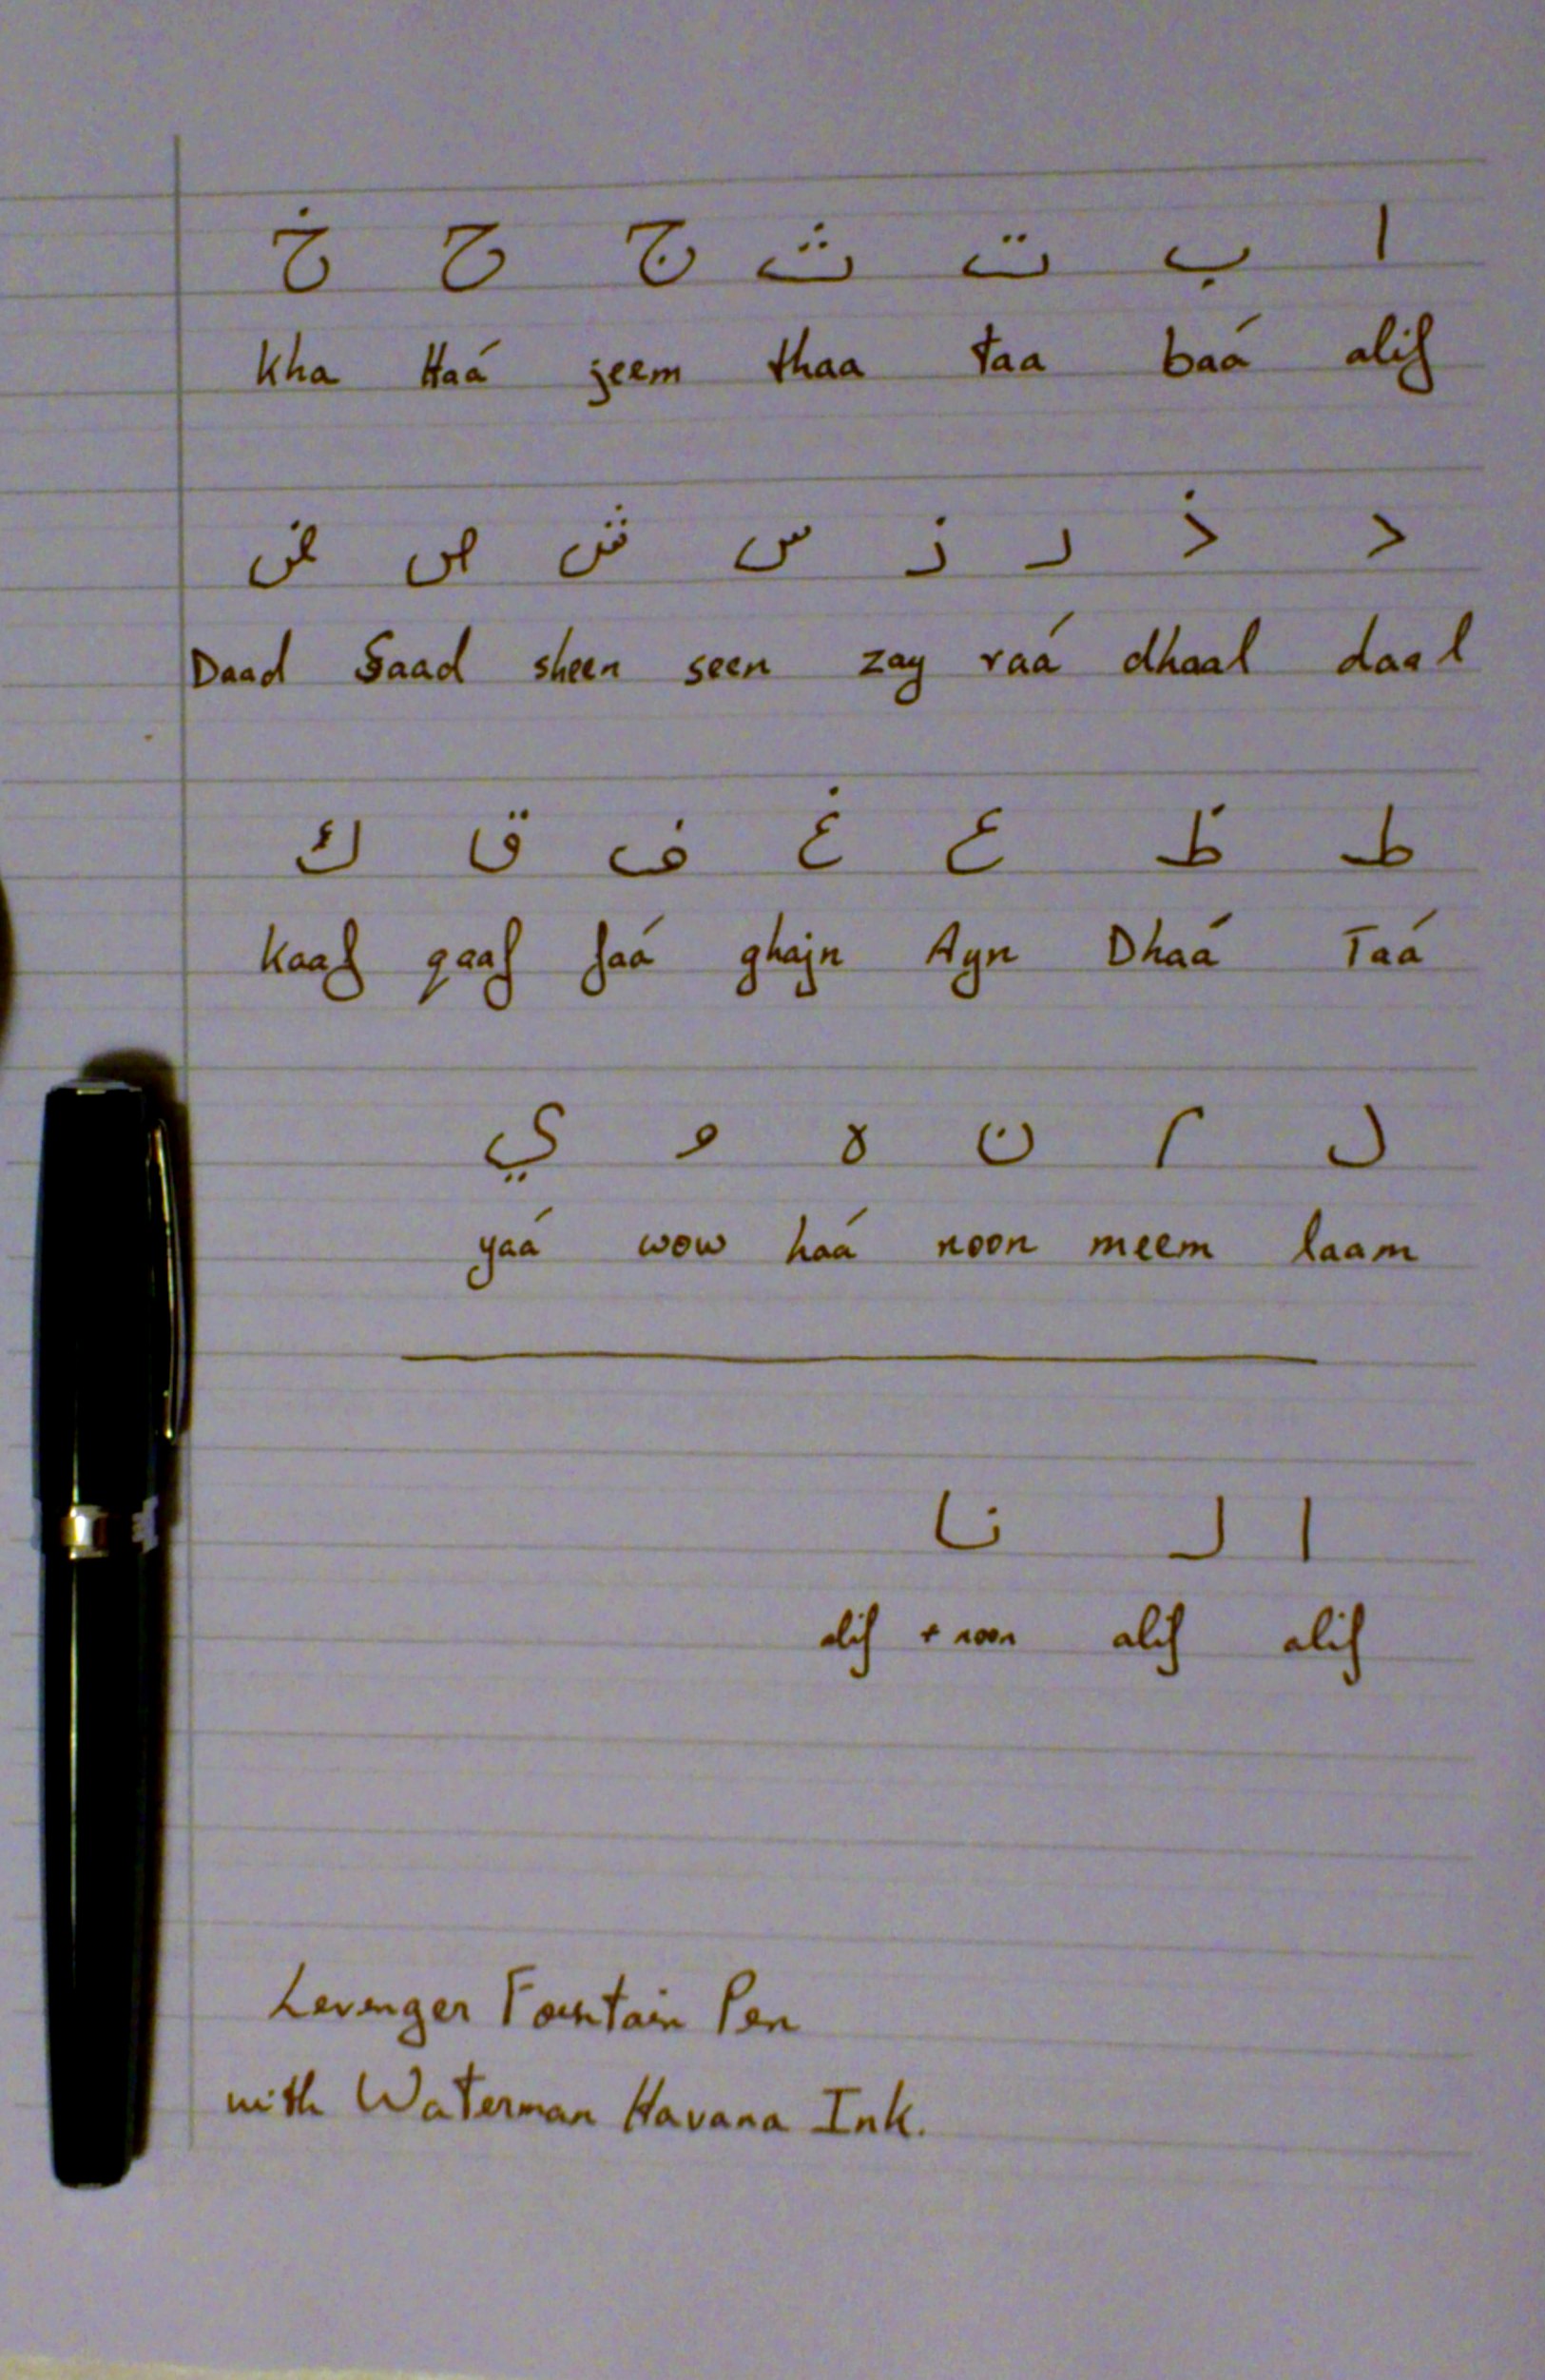 ا ب ت ث ج ح خ
kha Haá jeem thaa taa baá alif
د ذ ر ز س ش ص ض
Daad Saad sheen seen zay raá dhaal daal
ط ظ ع غ ف ق ك
kaaf qaaf faá ghajn Ayn Dhaá Taá
ل م ن ه و ي
yaá wow haá noon meem laam
ا لـ نا
alif + noon alif alif
Levenger Fountain Pen
with Waterman Havana Ink.